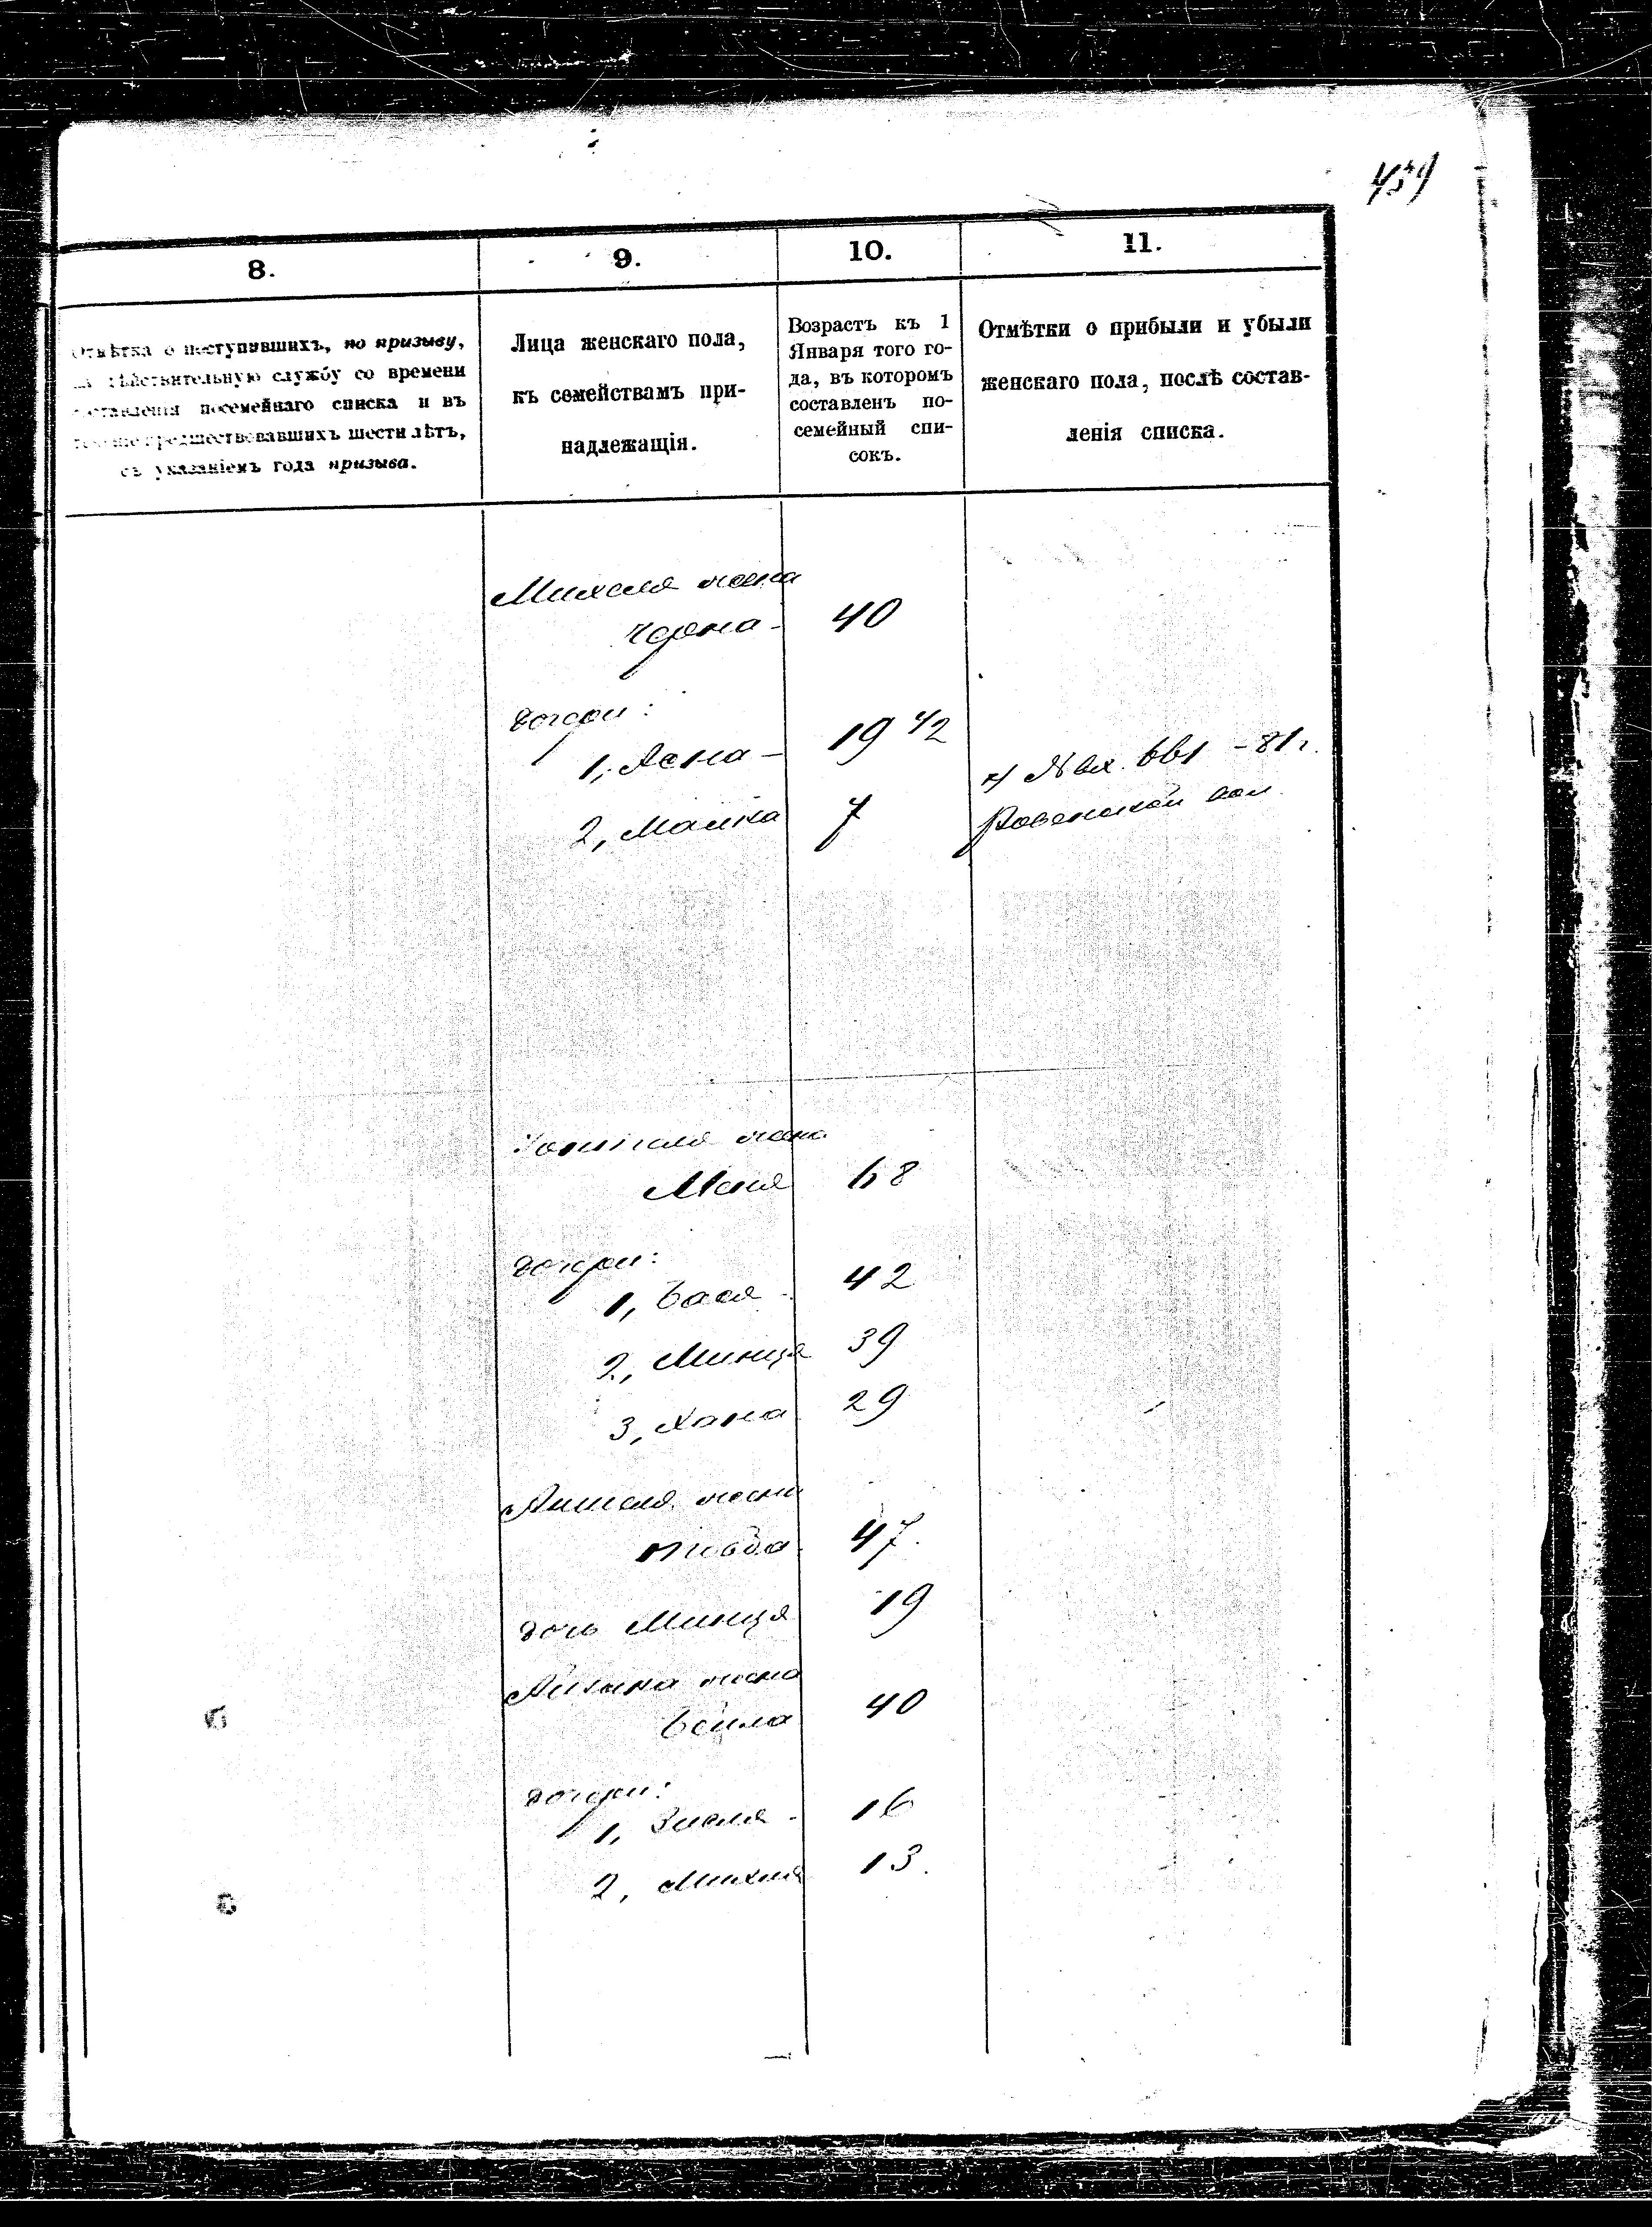 459
8.
9.
10.
11.
Отмѣтка о поступившихъ, по призыву,
на дѣйствительную службу со времени
составленія посемейнаго списка и въ
теченіе предшествовавшихъ шести лѣтъ,
съ указаніемъ года призыва.
Лица женскаго пола,
къ семействамъ при-
надлежащія.
Возрастъ къ 1
Января того го-
да, въ которомъ
составленъ по-
семейный спи-
сокъ.
Отмѣтки о прибыли и убыли
женскаго пола, послѣ состав-
ленія списка.
Михеля жена
Черна - 40
дочери:
1, Асна - 19 1/2
2, Малка 7
№ вх. 661 - 81 г.
жена
Меня 68
дочери:
1, Бася - 42
2, Минця 39
3, Хана 29
Аншеля жена
Товба 47.
дочь Минця 19
жена
Бейла 40
дочери:
1, Зисля - 16
2, 13.